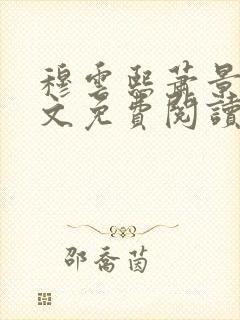 穆雲熙蕭景
文免費閱讀
邵喬茵